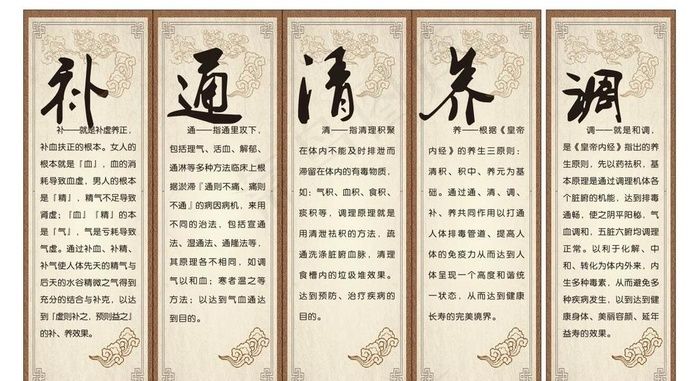 补
补——就是补虚养正，
补血扶正的根本。女人的
根本就是『血』，血的消
耗导致血虚，男人的根本
是『精』，精气不足导致
肾虚；『血』『精』的本
是『气』，气是亏耗导致
气虚。通过补血、补精、
补气使人体先天的精气与
后天的水谷精微之气得到
充分的结合与补克，以达
到『虚则补之，预则益之』
的补、养效果。
通
通——指通里攻下，
包括理气、活血、解郁、
通淋等多种方法临床上根
据淤滞『通则不痛、痛则
不通』的病因病机，来用
不同的治法，包括宣通
法、湿通法、通隆法等，
其原理各不相同，如调
气以和血；寒者温之等
方法；以达到气血通达
到目的。
清
清——指清理积聚
在体内不能及时排泄而
滞留在体内的有毒物质，
如：气积、血积、食积、
痰积等，调理原理就是
用清泄祛积的方法，疏
通洗涤脏腑血脉，清理
食槽内的垃圾堆效果。
达到预防、治疗疾病的
目的。
养
养——根据《皇帝
内经》的养生三原则：
清积、积中、养元为基
础。通过通、清、调、
补、养共同作用以打通
人体排毒管道、提高人
体的免疫力从而达到人
体呈现一个高度和谐统
一状态，从而达到健康
长寿的完美境界。
调
调——就是和调，
是《皇帝内经》指出的养
生原则，先以药祛积，基
本原理是通过调理机体各
个脏腑的机能，达到排毒
通畅，使之阴平阳秘，气
血调和，五脏六腑均调理
正常。以利于化解、中
和、转化为体内外来，内
生多种毒素，从而避免多
种疾病发生，以到达健
康身体、美丽容颜、延年
益寿的效果。